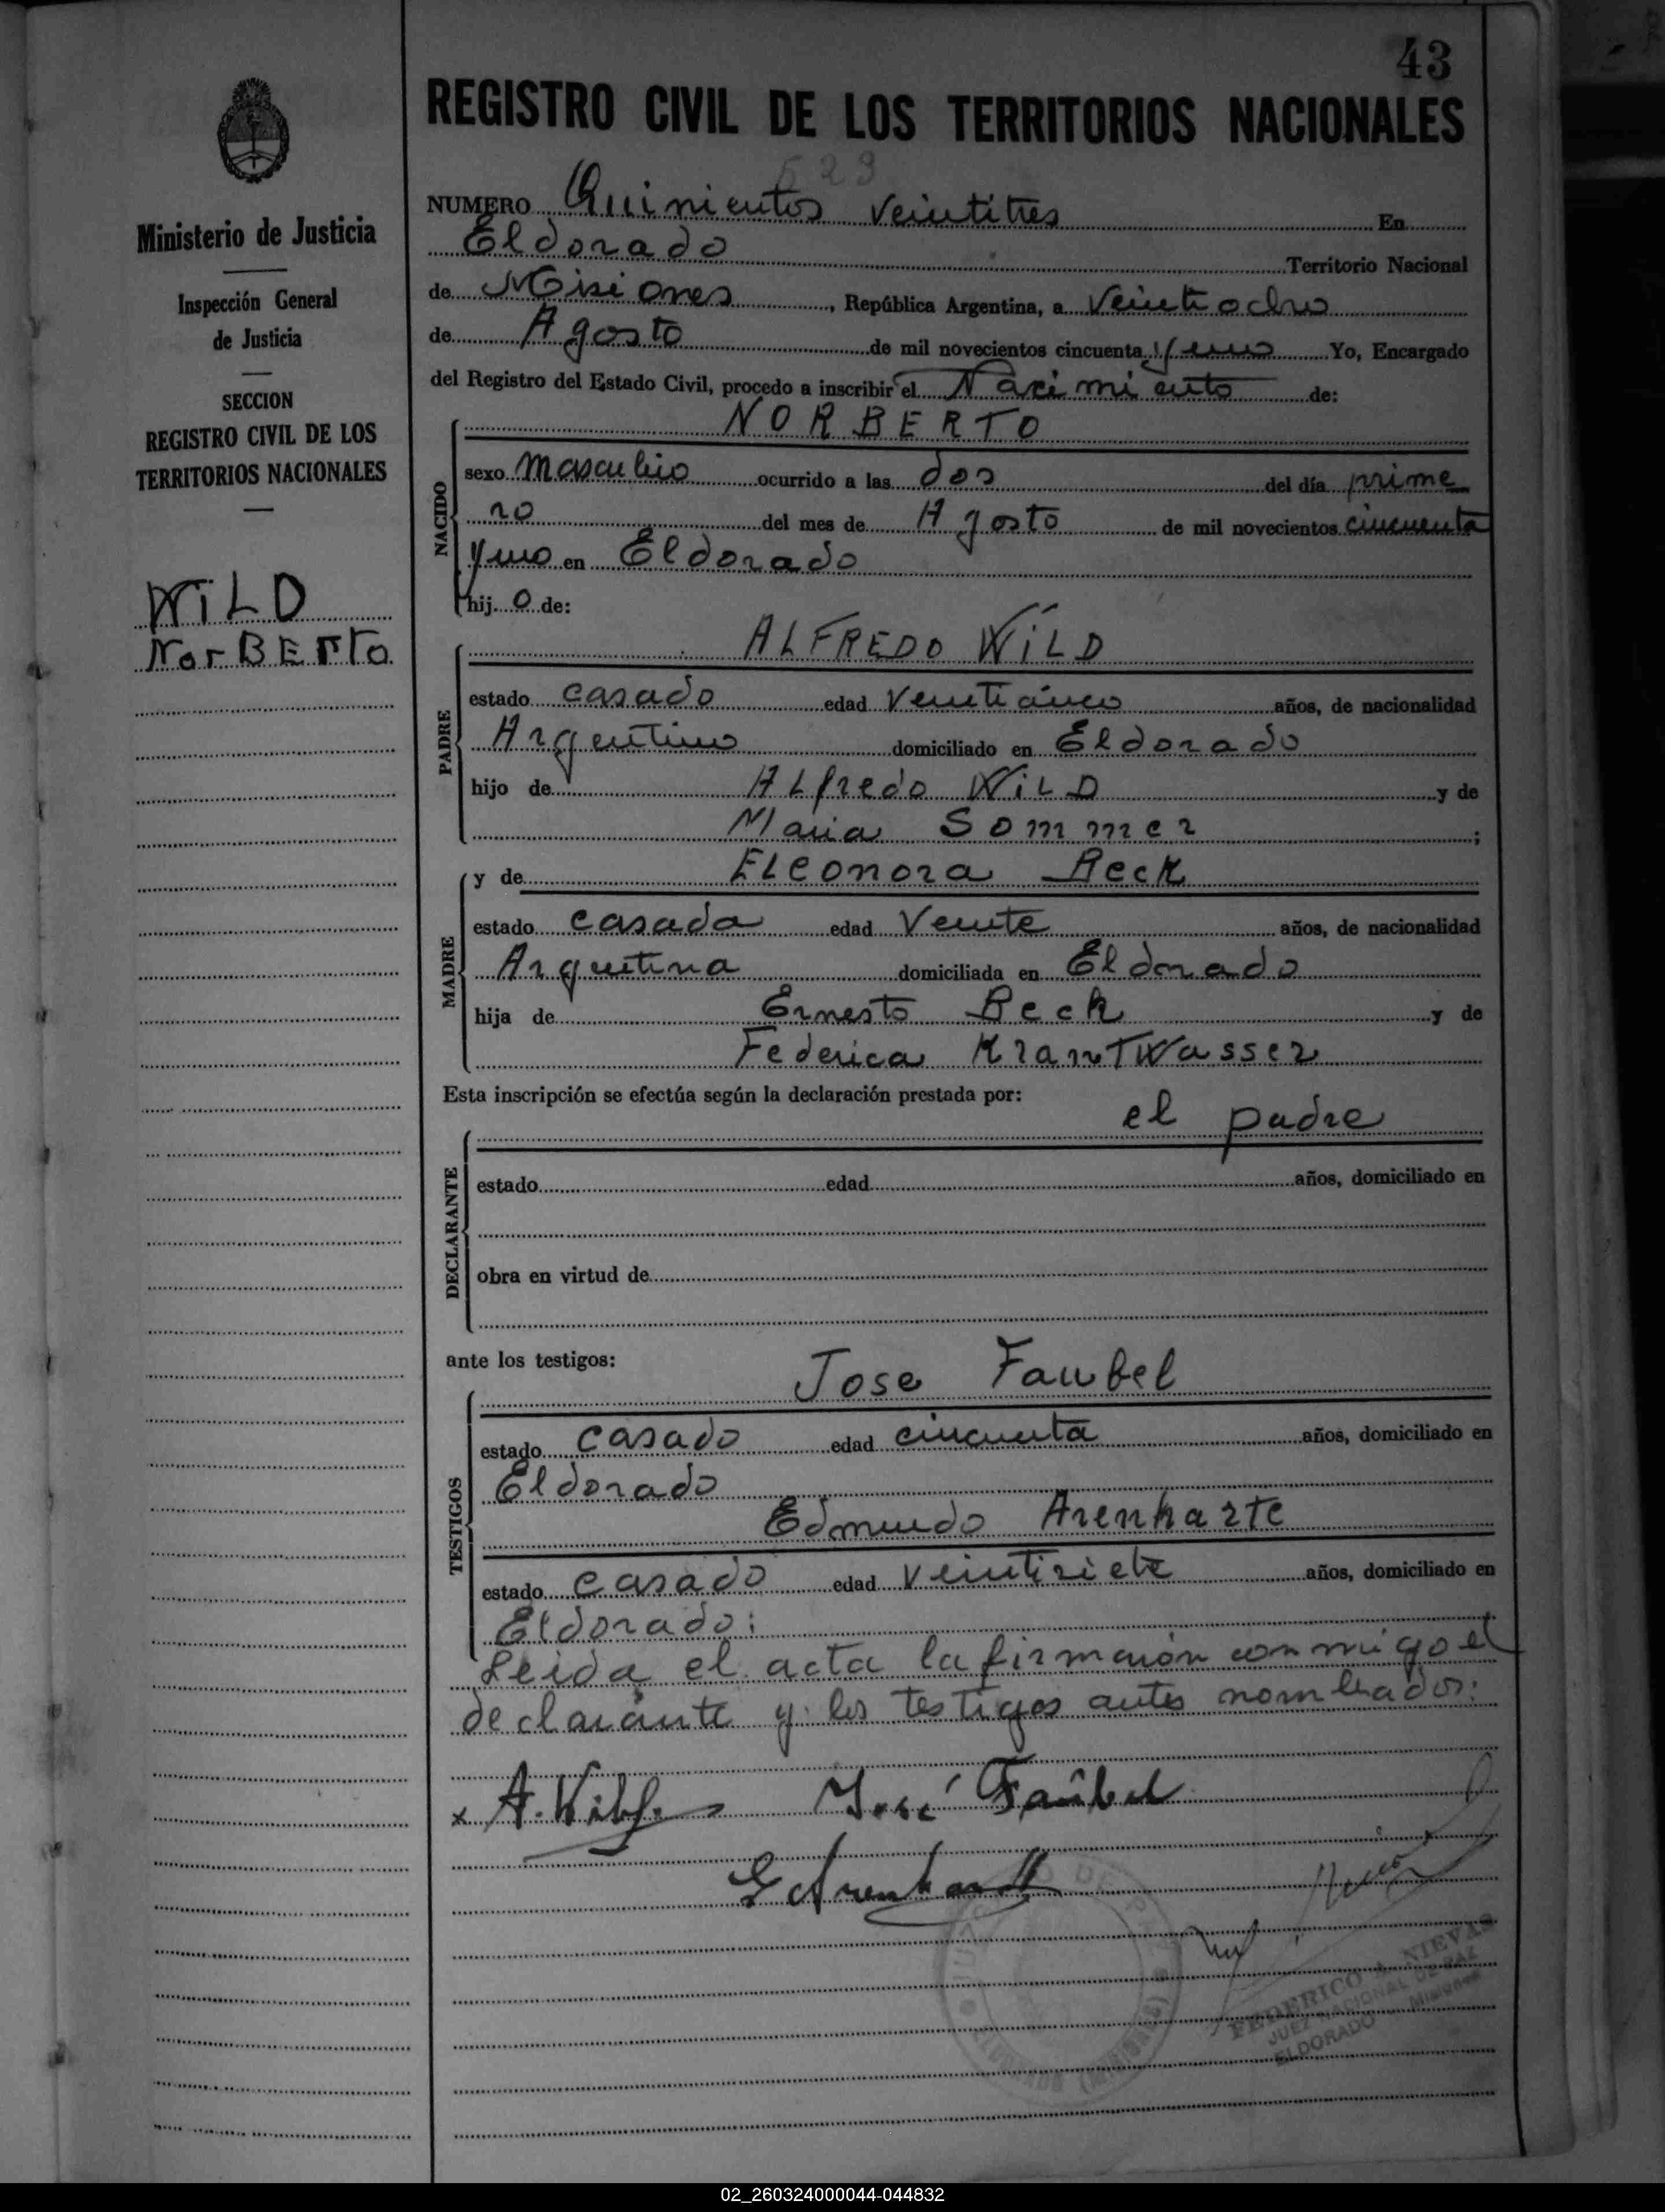 43
REGISTRO CIVIL DE LOS TERRITORIOS NACIONALES
523
Ministerio de Justicia
Inspección General
de Justicia
SECCION
REGISTRO CIVIL DE LOS
TERRITORIOS NACIONALES
WiLD
NorBErTo
NUMERO Quinientos veintitres En
Eldorado Territorio Nacional
de Misiones, República Argentina, a Veintiocho
de Agosto de mil novecientos cincuenta y uno Yo, Encargado
del Registro del Estado Civil, procedo a inscribir el Nacimiento de:
NACIDO
NORBERTO
sexo masculino ocurrido a las dos del día prime
ro del mes de Agosto de mil novecientos cincuenta
y uno en Eldorado
hij o de:
PADRE
ALFREDO WiLD
estado casado edad Veinticinco años, de nacionalidad
Argentino domiciliado en Eldorado
hijo de ALfredo WiLD y de
Maria Sommer ;
MADRE
y de ELeonora Beck
estado casada edad Veinte años, de nacionalidad
Argentina domiciliada en Eldorado
hija de Ernesto Beck y de
Federica KrantWasser
Esta inscripción se efectúa según la declaración prestada por:
DECLARANTE
el padre
estado edad años, domiciliado en
obra en virtud de
ante los testigos:
TESTIGOS
Jose Faubel
estado casado edad cincuenta años, domiciliado en
Eldorado
Edmundo Arenharte
estado casado edad veintisiete años, domiciliado en
Eldorado:
Leida el acta la firmaron conmigo el
declarante y los testigos antes nombrados:
x A. Wild José Faubel
E Arenhardt
FEDERICO A. NIEVAS
JUEZ NACIONAL DE PAZ
ELDORADO Misiones
02_260324000044-044832